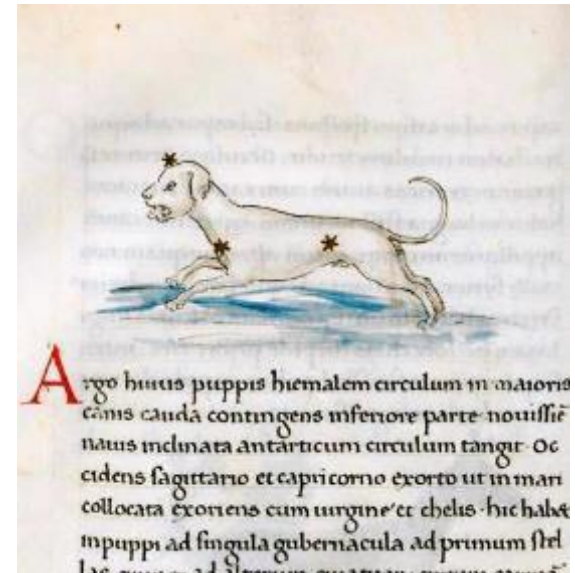 Argo huius puppis hiemalem circulum in maioris
canis cauda contingens inferiore parte nouissiē
nauis inclinata antarticum circulum tangit · Oc
cidens sagittario et capricorno exorto ut in mari
collocata exoriens cum uirgine et chelis · hic habet
in puppi ad singula gubernacula ad primum stel